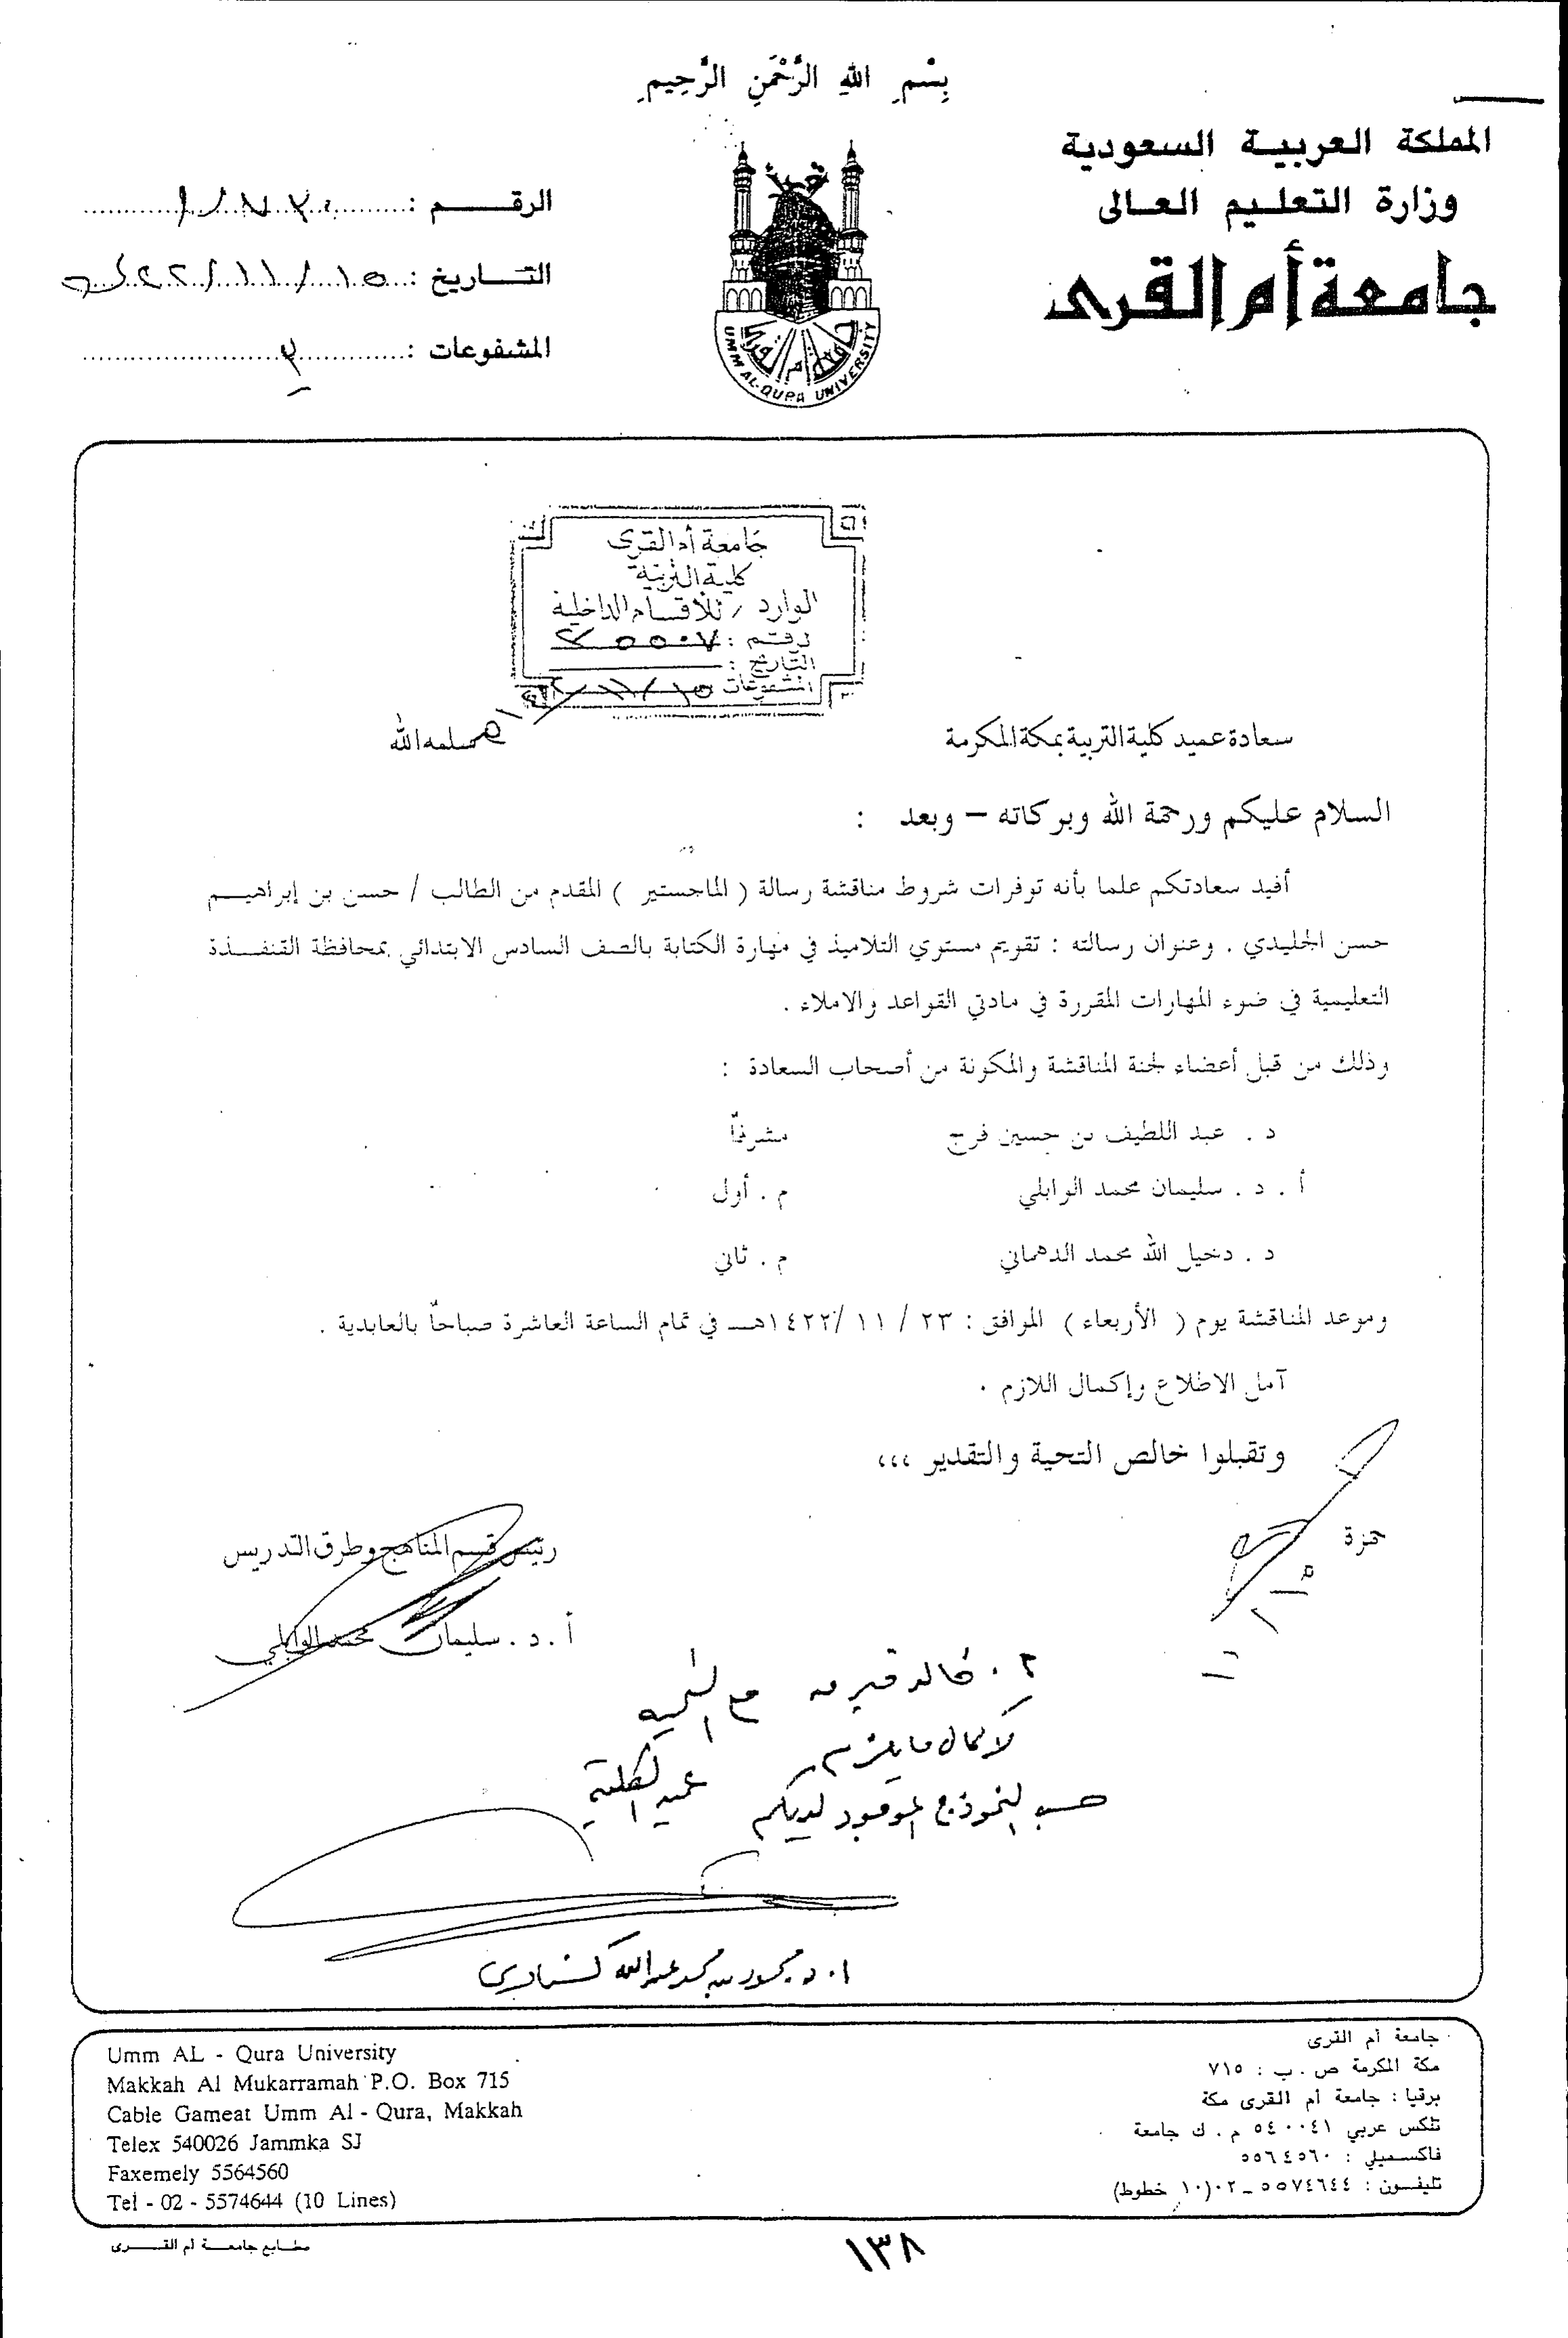 بِسْمِ اللهِ الرَّحْمَنِ الرَّحِيمِ
المملكة العربية السعودية
وزارة التعليم العالى
جامعة أم القرى
الرقم :
التاريخ : ١٥ / ١١ / ١٤٢٢هـ
المشفوعات :
UMM AL-QURA UNIVERSITY
جامعة أم القرى
كلية التربية
الوارد / للأقسام الداخلية
رقم :
التاريخ :
المشفوعات
سعادة عميد كلية التربية بمكة المكرمة سلمه الله
السلام عليكم ورحمة الله وبركاته – وبعد :
أفيد سعادتكم علما بأنه توفرات شروط مناقشة رسالة ( الماجستير ) المقدم من الطالب / حسن بن إبراهيم
حسن الجليدي . وعنوان رسالته : تقويم مستوي التلاميذ في مهارة الكتابة بالصف السادس الابتدائي بمحافظة القنفذة
التعليمية في ضوء المهارات المقررة في مادتي القواعد والاملاء .
وذلك من قبل أعضاء لجنة المناقشة والمكونة من أصحاب السعادة :
د . عبد اللطيف بن حسين فرج مشرفاً
أ . د . سليمان محمد الوابلي م . أول
د . دخيل الله محمد الدهماني م . ثاني
وموعد المناقشة يوم ( الأربعاء ) الموافق : ٢٣ / ١١ /١٤٢٢هـ في تمام الساعة العاشرة صباحاً بالعابدية .
آمل الاطلاع وإكمال اللازم .
وتقبلوا خالص التحية والتقدير ،،،
حمزة
رئيس قسم المناهج وطرق التدريس
أ . د . سليمان محمد الوابلي
خالد مع التحية
لاكمال ما يلزم
حسب النموذج الموجود لديكم
عميد الكلية
ا . د محمود بن محمد عبدالله كسناوي
Umm AL - Qura University
Makkah Al Mukarramah P.O. Box 715
Cable Gameat Umm Al - Qura, Makkah
Telex 540026 Jammka SJ
Faxemely 5564560
Tel - 02 - 5574644 (10 Lines)
جامعة أم القرى
مكة المكرمة ص . ب : ٧١٥
برقيا : جامعة أم القرى مكة
تلكس عربي ٥٤٠٠٤١ م . ك جامعة
فاكسميلي : ٥٥٦٤٥٦٠
تليفون : ٥٥٧٤٦٤٤ – ٠٢ (١٠ خطوط)
مطابع جامعة أم القرى
١٣٨